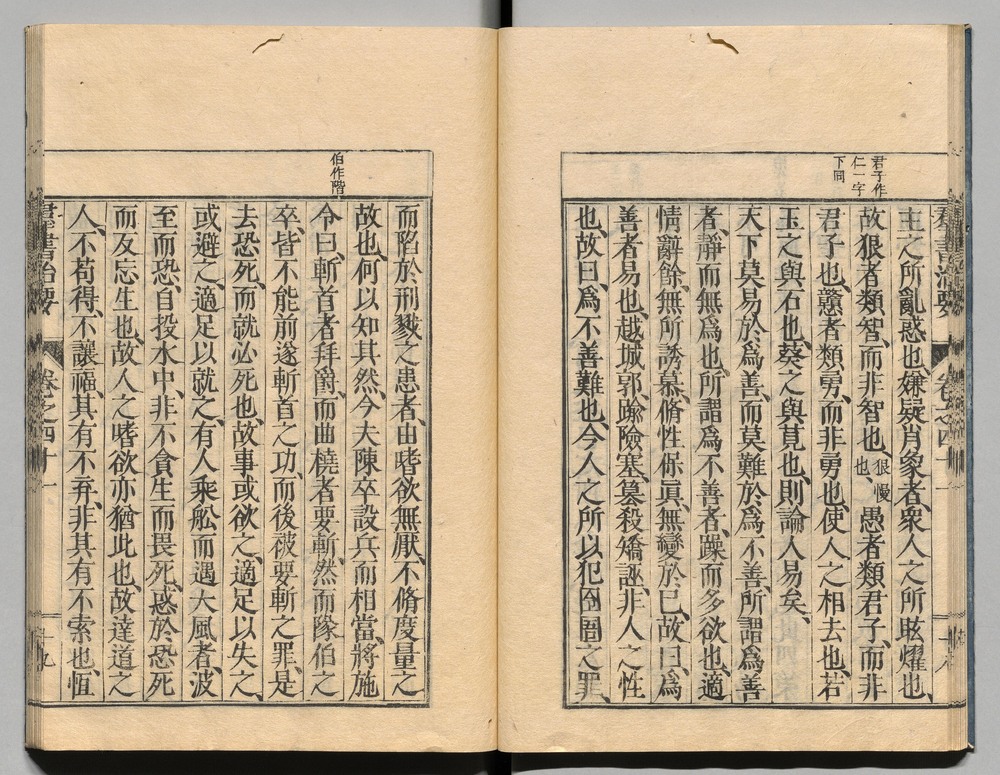 君子作
仁一字
下同
羣書治要 卷之四十一
主之所亂惑也、嫌疑肖象者、衆人之所眩耀也、
故狠者類智、而非智也、狠慢也、愚者類君子、而非
君子也、戇者類勇、而非勇也、使人之相去也、若
玉之與石也、葵之與莧也、則論人易矣、
天下莫易於爲善、而莫難於爲不善、所謂爲善
者、靜而無爲也、所謂爲不善者、躁而多欲也、適
情辭餘、無所誘慕、脩性保眞、無變於己、故曰、爲
善者易也、越城郭、踰險塞、簒殺矯誣、非人之性
也、故曰、爲不善難也、今人之所以犯囹圄之罪、
伯作階
而陷於刑戮之患者、由嗜欲無厭、不脩度量之
故也、何以知其然、今夫陳卒設兵、而相當、將施
令曰、斬首者拜爵、而曲橈者要斬、然而隊伯之
卒、皆不能前遂斬首之功、而後被要斬之罪、是
去恐死、而就必死也、故事或欲之、適足以失之、
或避之、適足以就之、有人乘舩而遇大風者、波
至而恐、自投水中、非不貪生而畏死、惑於恐死
而反忘生也、故人之嗜欲亦猶此也、故達道之
人、不苟得、不讓福、其有不弃、非其有不索也、恒
羣書治要 卷之四十一 十九